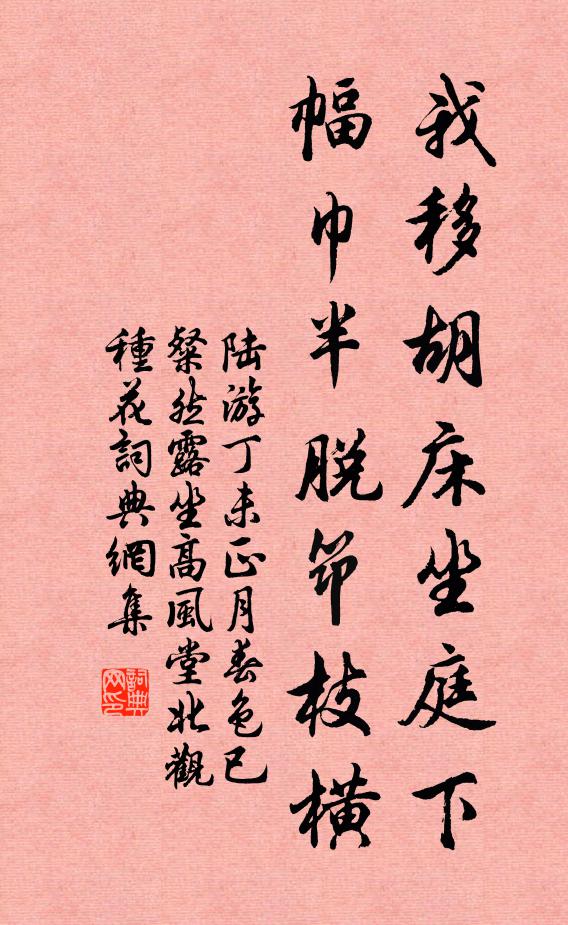 我移胡床坐庭下
幅巾半脱筇枝橫
陆游丁未正月春色已
粲然露坐高風堂北觀
種花詞典網集
詞典
网印